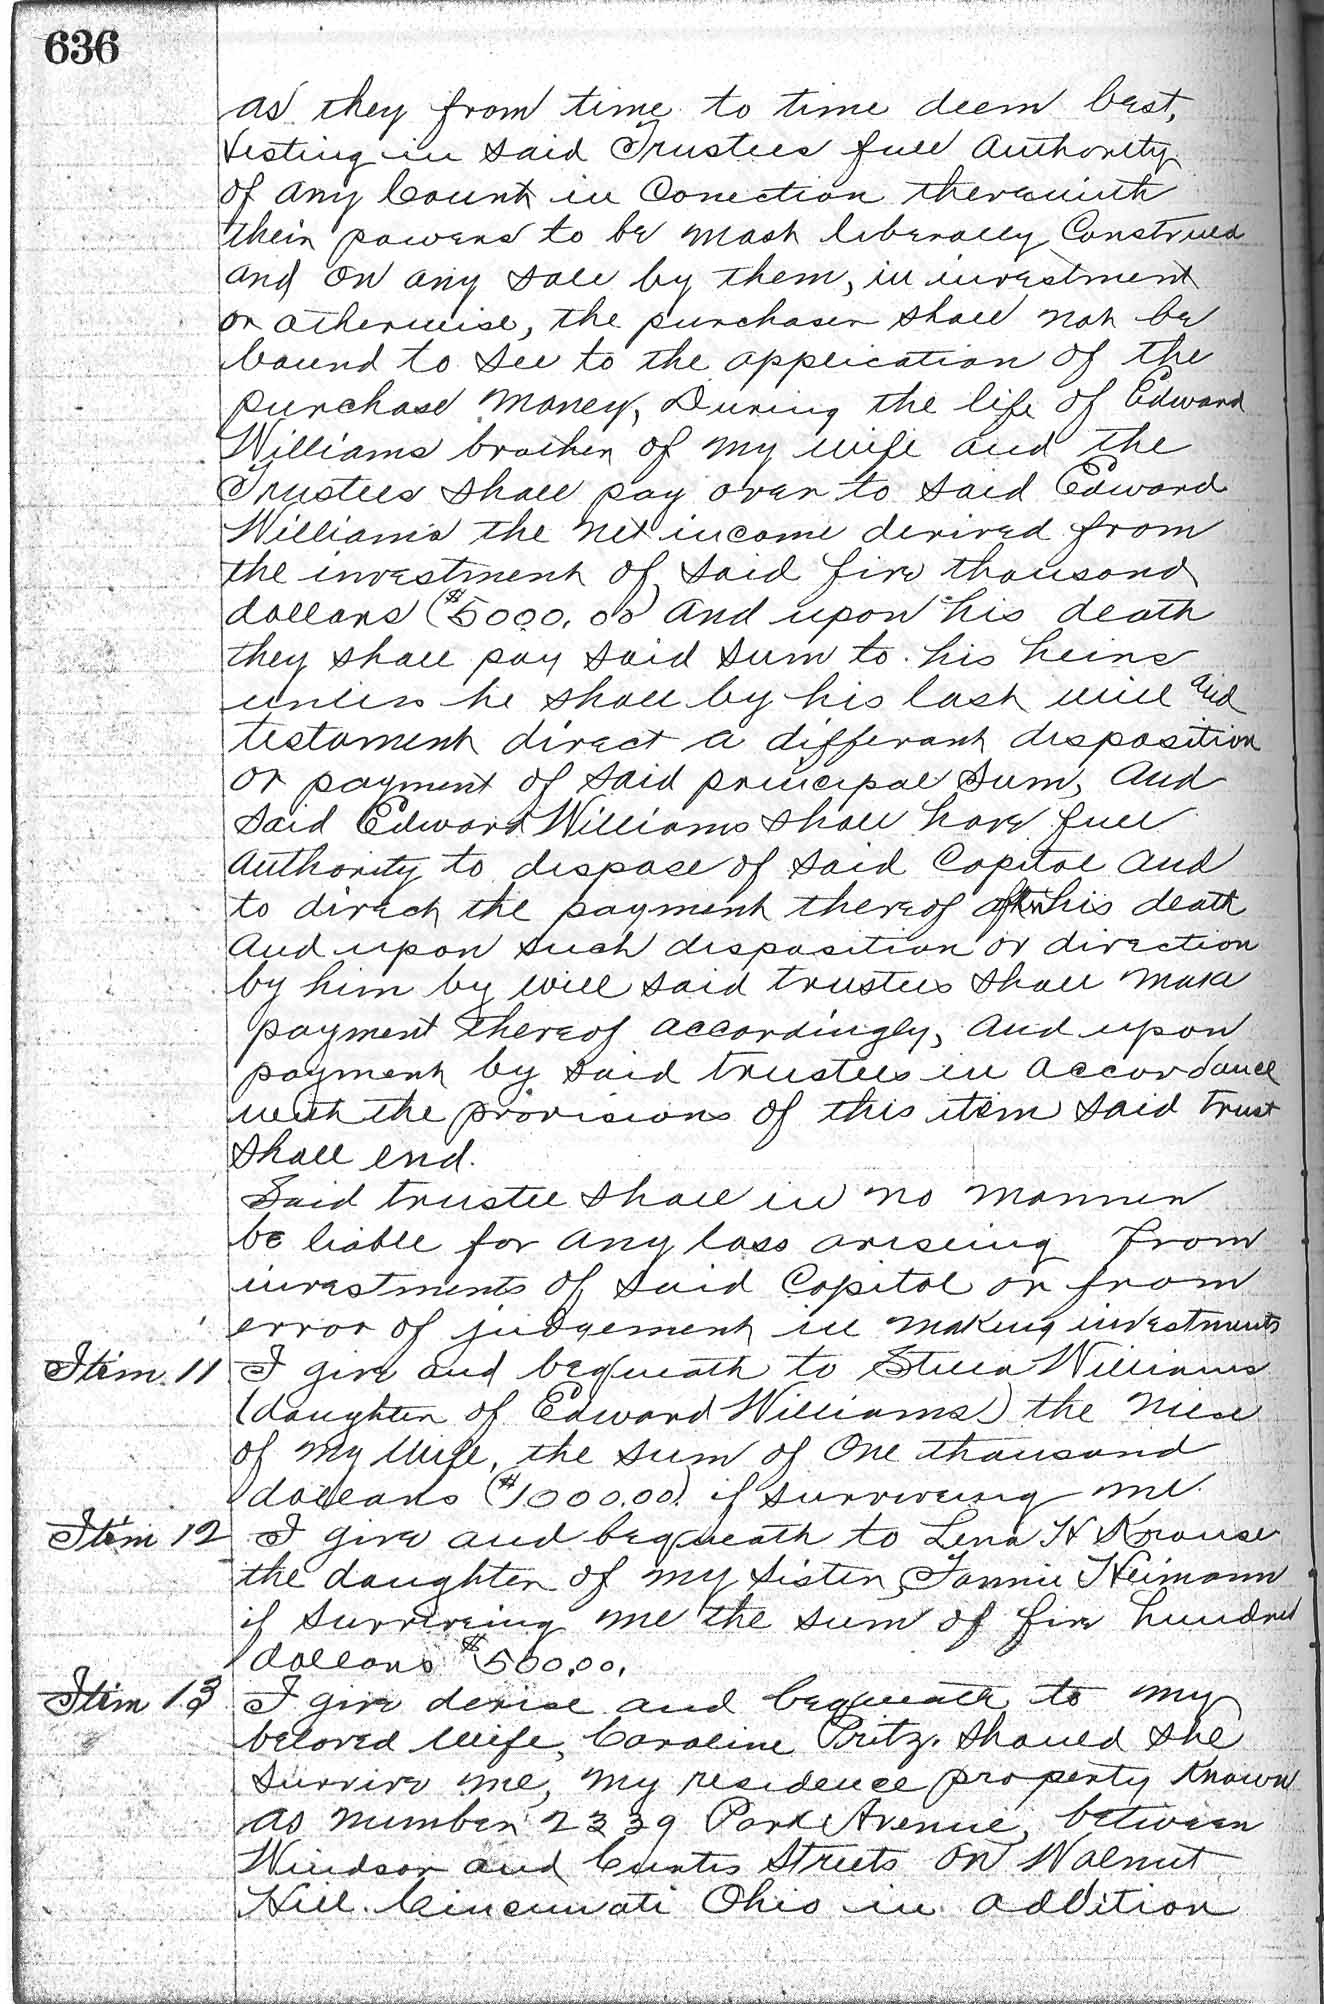 636
as they from time to time deem best,
Vesting in said Trustees full authority
of any Court in Conection therewith
their powers to be most liberally Construed
and on any sale by them, in investment
or otherwise, the purchaser shall not be
bound to see to the application of the
purchase money, During the life of Edward
Williams brother of my wife and the
Trustees shall pay over to said Edward
Williams the net income derived from
the investment of said five thousand
dollars ($5000.00) and upon his death
they shall pay said sum to his heirs
unless he shall by his last will and
testament direct a different disposition
or payment of said principal sum, and
said Edward Williams shall have full
authority to dispose of said Capital and
to direct the payment thereof after his death
and upon such disposition or direction
by him by will said trustees shall make
payment thereof accordingly, and upon
payment by said trustees in accordance
with the provisions of this item said trust
shall end.
Said trustee shall in no manner
be liable for any loss ariseing from
investments of said Capital or from
error of judgement in making investments
Item 11 I give and bequeath to Stella Williams
(daughter of Edward Williams) the niese
of my wife, the sum of One thousand
dollars ($1000.00) if surviveing me.
Item 12 I give and bequeath to Lena H Krouse
the daughter of my sister, Fannie Heimann
if surviveing me the sum of five hundred
dollars $500.00.
Item 13 I give devise and bequeath to my
beloved wife, Caroline Pritz. should she
survive me, my residence property known
as number 2339 Park Avenue, between
Windsor and Curtis Streets on Walnut
Hill. Cincinnati Ohio in addition